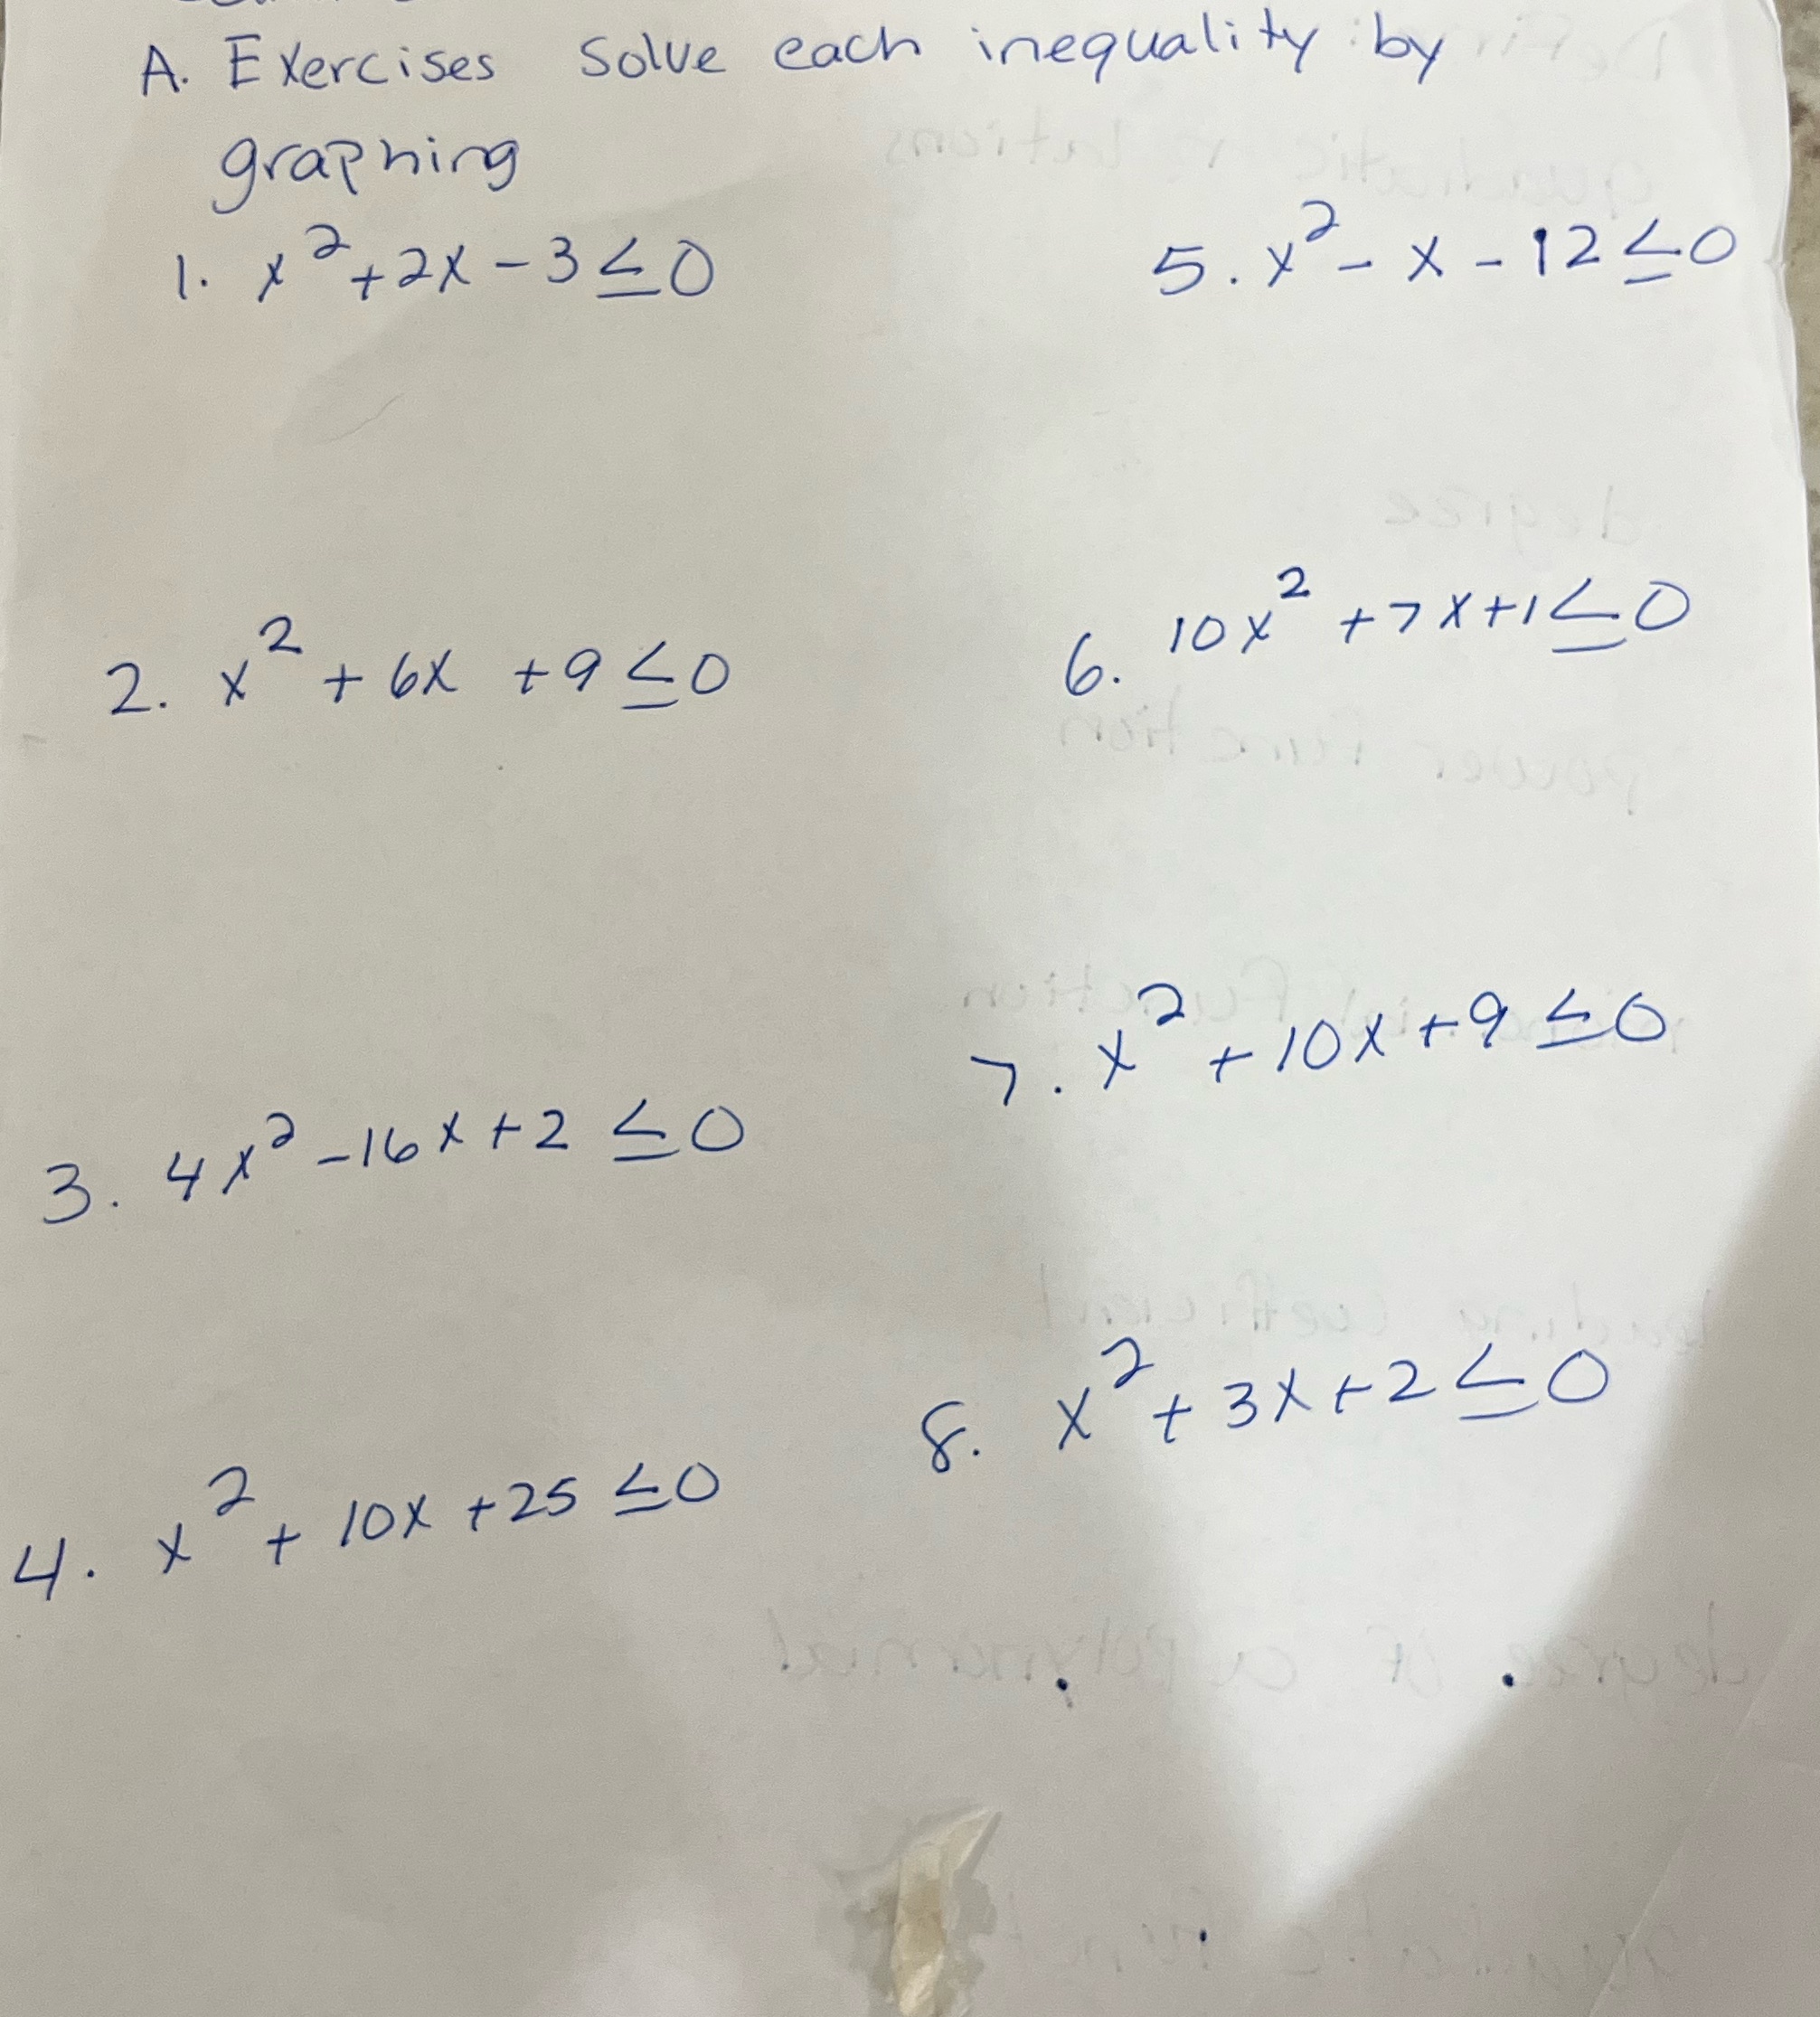 A. Exercises Solve each inequality by
graphing
1. x² + 2x - 3 ≤ 0
5. x² - x - 12 ≤ 0
2. x² + 6x + 9 ≤ 0
6. 10x² + 7x + 1 ≤ 0
3. 4x² - 16x + 2 ≤ 0
7. x² + 10x + 9 ≤ 0
4. x² + 10x + 25 ≤ 0
8. x² + 3x + 2 ≤ 0